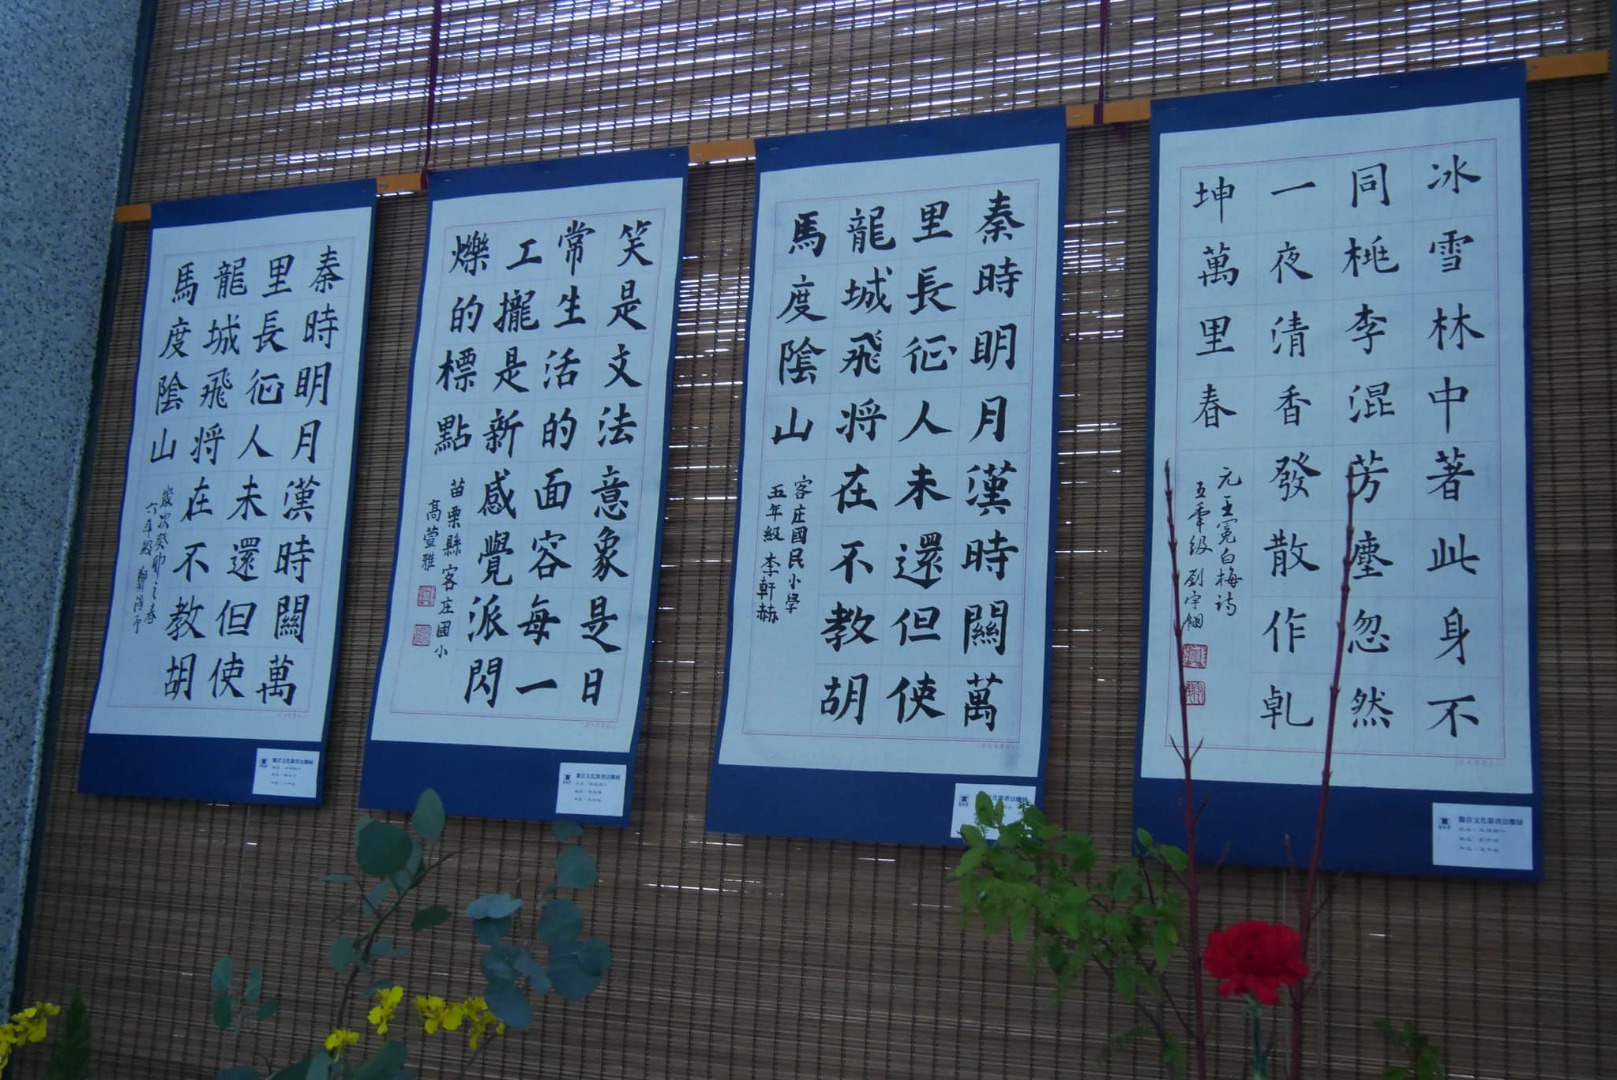 冰雪林中著此身不
同桃李混芳塵忽然
一夜清香發散作乹
坤萬里春
元王冕白梅詩
五年級 劉宇
秦時明月漢時關萬
里長征人未還但使
龍城飛将在不教胡
馬度陰山
客庄國民小學
五年級 李軒赫
笑是文法意象是日
常生活的面容每一
工攏是新感覺派閃
爍的標點
苗栗縣客庄國小
高萱雅
秦時明月漢時關萬
里長征人未還但使
龍城飛将在不教胡
馬度陰山
歲次癸卯之春
六年級